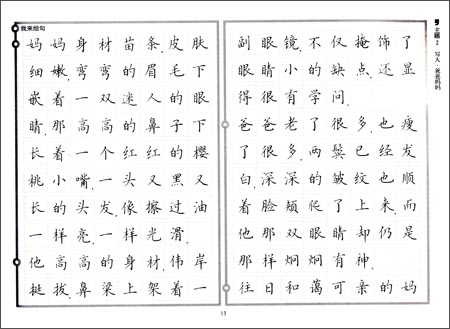 我来组句
妈妈身材苗条，皮肤
细嫩，弯弯的眉毛下
嵌着一双迷人的眼
睛，那高高的鼻子下
长着一个红红的樱
桃小嘴，一头又黑又
长的头发，像擦过油
一样亮，一样光滑。
他高高的身材，伟岸
挺拔，鼻梁上架着一
副眼镜，不仅掩饰了
眼睛小的缺点，还显
得很有学问。
爸爸老了很多，也瘦
了很多，两鬓已经发
白，深深的皱纹也顺
着脸颊爬了上来，而
他那双眼睛却仍是
那样炯炯有神。
往日和蔼可亲的妈
主题 2 写人：爸爸妈妈
13